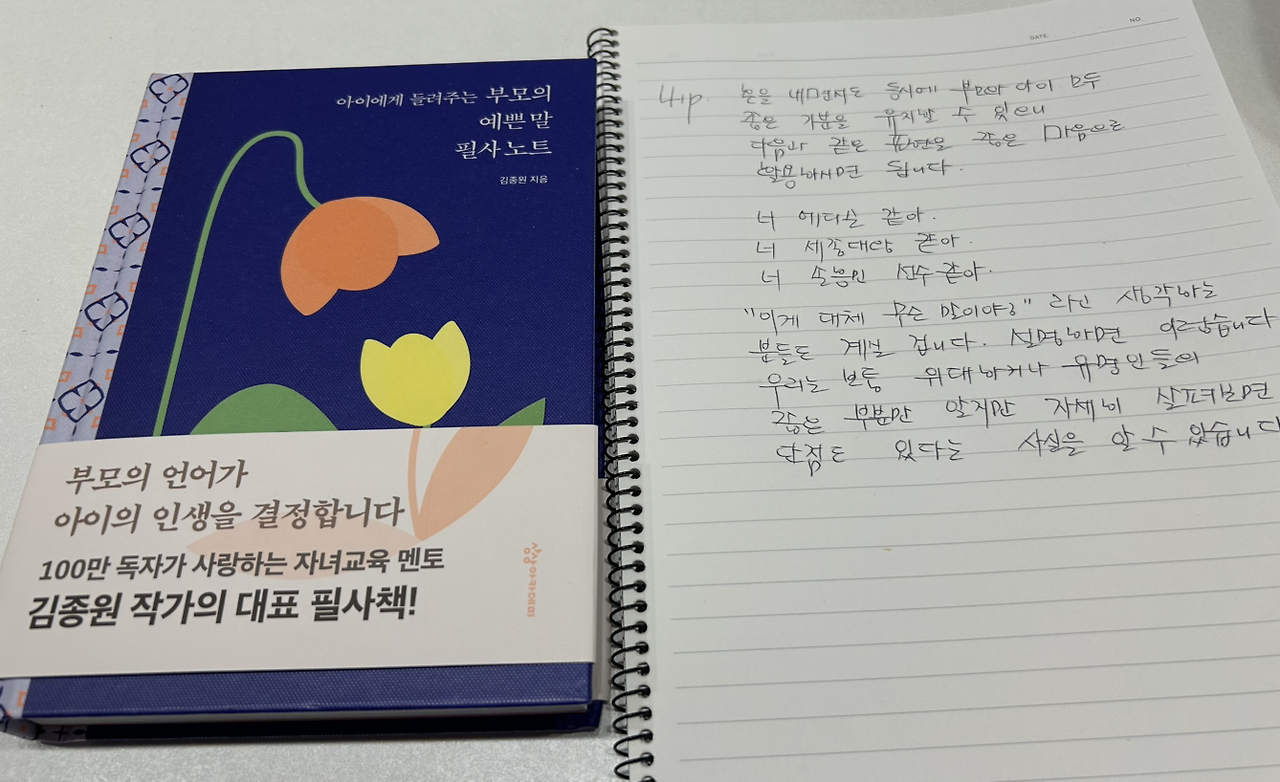 아이에게 들려주는 부모의
예쁜 말
필사 노트
김종원 지음
부모의 언어가
아이의 인생을 결정합니다
100만 독자가 사랑하는 자녀교육 멘토
김종원 작가의 대표 필사책!
상상아카데미
NO.
DATE
41p. 혼을 내면서도 동시에 부모와 아이 모두
좋은 기분을 유지할 수 있으니
다음과 같은 표현을 좋은 마음으로
활용하시면 됩니다.
너 에디슨 같아.
너 세종대왕 같아.
너 손흥민 선수 같아.
"이게 대체 무슨 말이야?" 라신 생각하는
분들도 계실 겁니다. 설명하면 이렇습니다
우리는 보통 위대하거나 유명인들의
좋은 부분만 알지만 자세히 살펴보면
단점도 있다는 사실을 알 수 있습니다